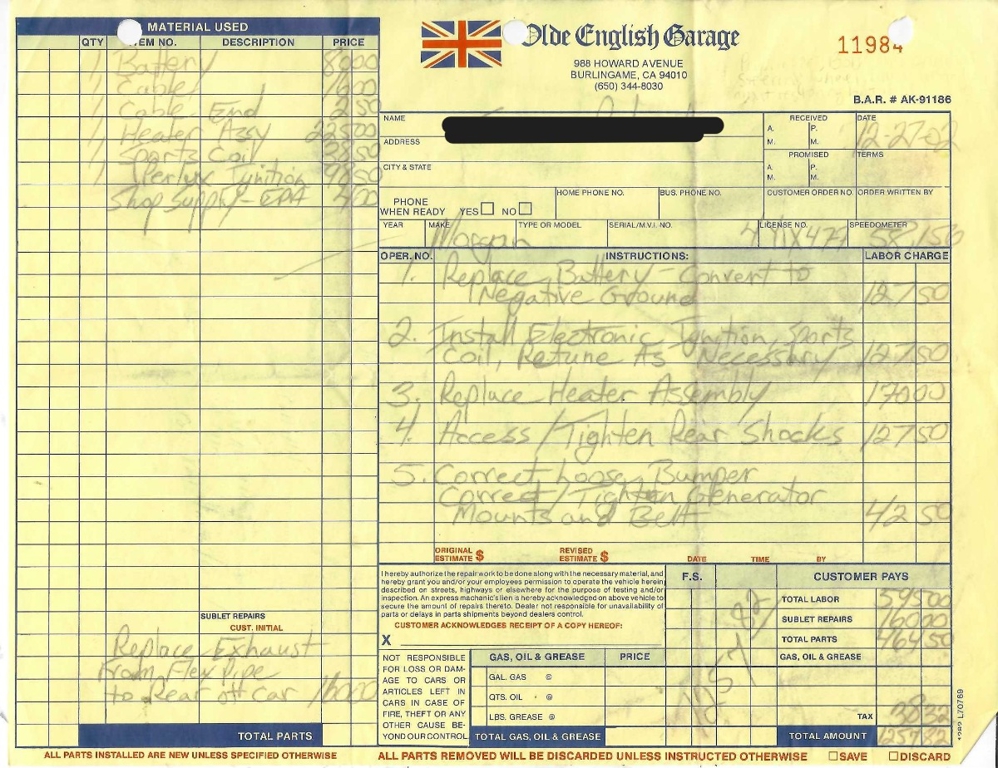 MATERIAL USED
QTY ITEM NO. DESCRIPTION PRICE
1 Battery 8000
1 Cable 1600
1 Cable End 250
1 Heater Assy 22500
1 Sports Coil 3850
1 Perlux Ignition 9850
Shop Supply - EPA 400
SUBLET REPAIRS
CUST. INITIAL
Replace Exhaust
From Flex Pipe
to Rear of Car 16000
TOTAL PARTS
ALL PARTS INSTALLED ARE NEW UNLESS SPECIFIED OTHERWISE
Olde English Garage
988 HOWARD AVENUE
BURLINGAME, CA 94010
(650) 344-8030
11984
B.A.R. # AK-91186
NAME
ADDRESS
CITY & STATE
RECEIVED
A. M. P. M.
DATE
12-27-02
PROMISED
A. M. P. M.
TERMS
PHONE WHEN READY YES NO
HOME PHONE NO. BUS. PHONE NO. CUSTOMER ORDER NO. ORDER WRITTEN BY
YEAR MAKE TYPE OR MODEL SERIAL/M.V.I. NO. LICENSE NO. SPEEDOMETER
Morgan 58,156
OPER. NO. INSTRUCTIONS: LABOR CHARGE
1. Replace Battery - Convert to
Negative Ground 12750
2. Install Electronic Ignition, Sports
Coil, Retune As Necessary 12750
3. Replace Heater Assembly 17000
4. Access/Tighten Rear Shocks 12750
5. Correct Loose Bumper
Correct/Tighten Generator
Mounts and Belt 4250
ORIGINAL ESTIMATE $ REVISED ESTIMATE $ DATE TIME BY
I hereby authorize the repair work to be done along with the necessary material, and
hereby grant you and/or your employees permission to operate the vehicle herein
described on streets, highways or elsewhere for the purpose of testing and/or
inspection. An express machanic's lien is hereby acknowledged on above vehicle to
secure the amount of repairs thereto. Dealer not responsible for unavailability of
parts or delays in parts shipments beyond dealers control.
CUSTOMER ACKNOWLEDGES RECEIPT OF A COPY HEREOF:
X
F.S.
CUSTOMER PAYS
TOTAL LABOR 59500
SUBLET REPAIRS 16000
TOTAL PARTS 46450
GAS, OIL & GREASE
TAX 3832
TOTAL AMOUNT 125782
NOT RESPONSIBLE
FOR LOSS OR DAM-
AGE TO CARS OR
ARTICLES LEFT IN
CARS IN CASE OF
FIRE, THEFT OR ANY
OTHER CAUSE BE-
YOND OUR CONTROL.
GAS, OIL & GREASE PRICE
GAL. GAS @
QTS. OIL @
LBS. GREASE @
TOTAL GAS, OIL & GREASE
ALL PARTS REMOVED WILL BE DISCARDED UNLESS INSTRUCTED OTHERWISE SAVE DISCARD